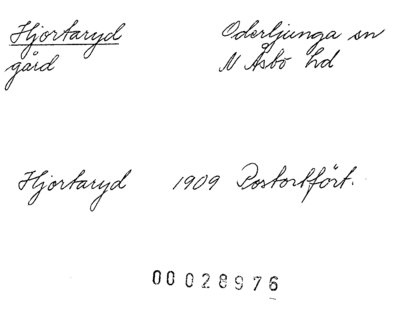 Hjortaryd Oderljunga sn
gård N Åsbo hd
Hjortaryd 1909 Postortfört.
00028976